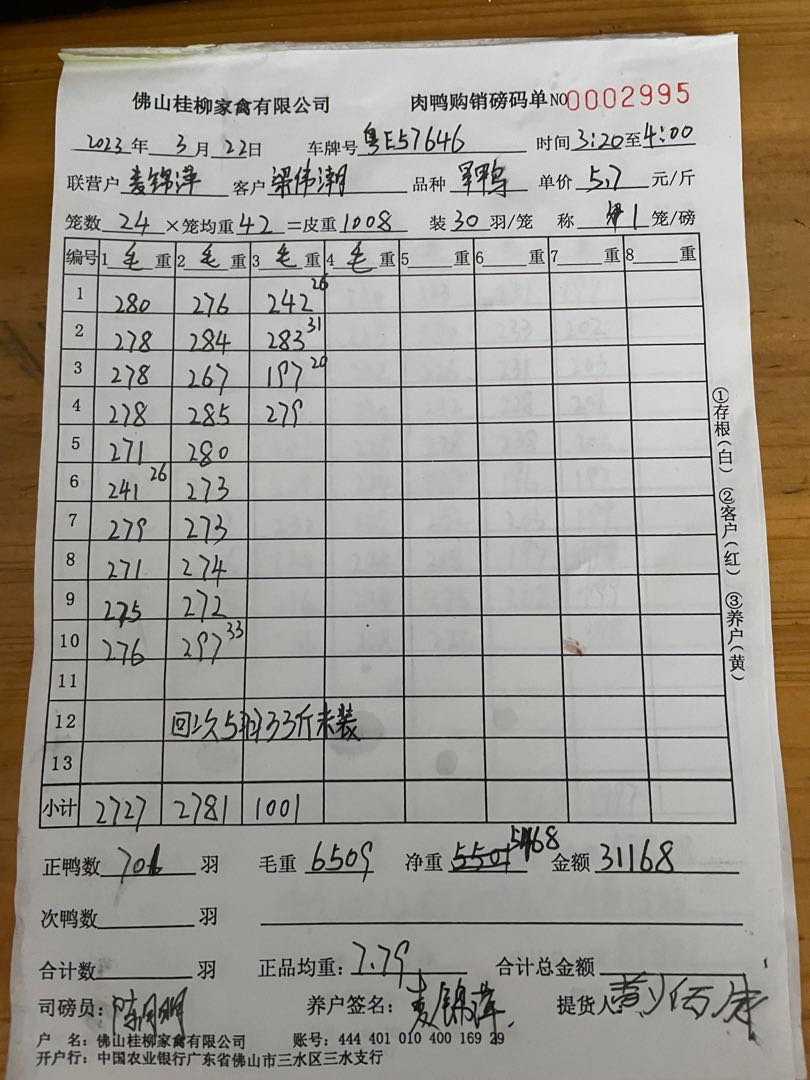 佛山桂柳家禽有限公司 肉鸭购销磅码单 NO0002995
2023年 3月22日 车牌号 粤E57646 时间 3:20至4:00
联营户 麦锦萍 客户 梁伟潮 品种 鸭 单价 5.7 元/斤
笼数 24 ×笼均重 42 =皮重 1008 装 30 羽/笼 称 1 笼/磅
编号 1 毛 重 2 毛 重 3 毛 重 4 毛 重 5 重 6 重 7 重 8 重
1 280 276 242 26
2 278 284 283 31
3 278 267 197 20
4 278 285 279
5 271 280
6 241 26 273
7 279 273
8 271 274
9 275 272
10 276 297 33
11
12 回次5羽33斤未装
13
小计 2727 2781 1001
正鸭数 706 羽 毛重 6509 净重 5501 5468 金额 31168
次鸭数 羽
合计数 羽 正品均重: 7.79 合计总金额
司磅员: 养户签名: 麦锦萍 提货人:
户 名: 佛山桂柳家禽有限公司 账号: 444 401 010 400 169 29
开户行: 中国农业银行广东省佛山市三水区三水支行
①存根(白) ②客户(红) ③养户(黄)